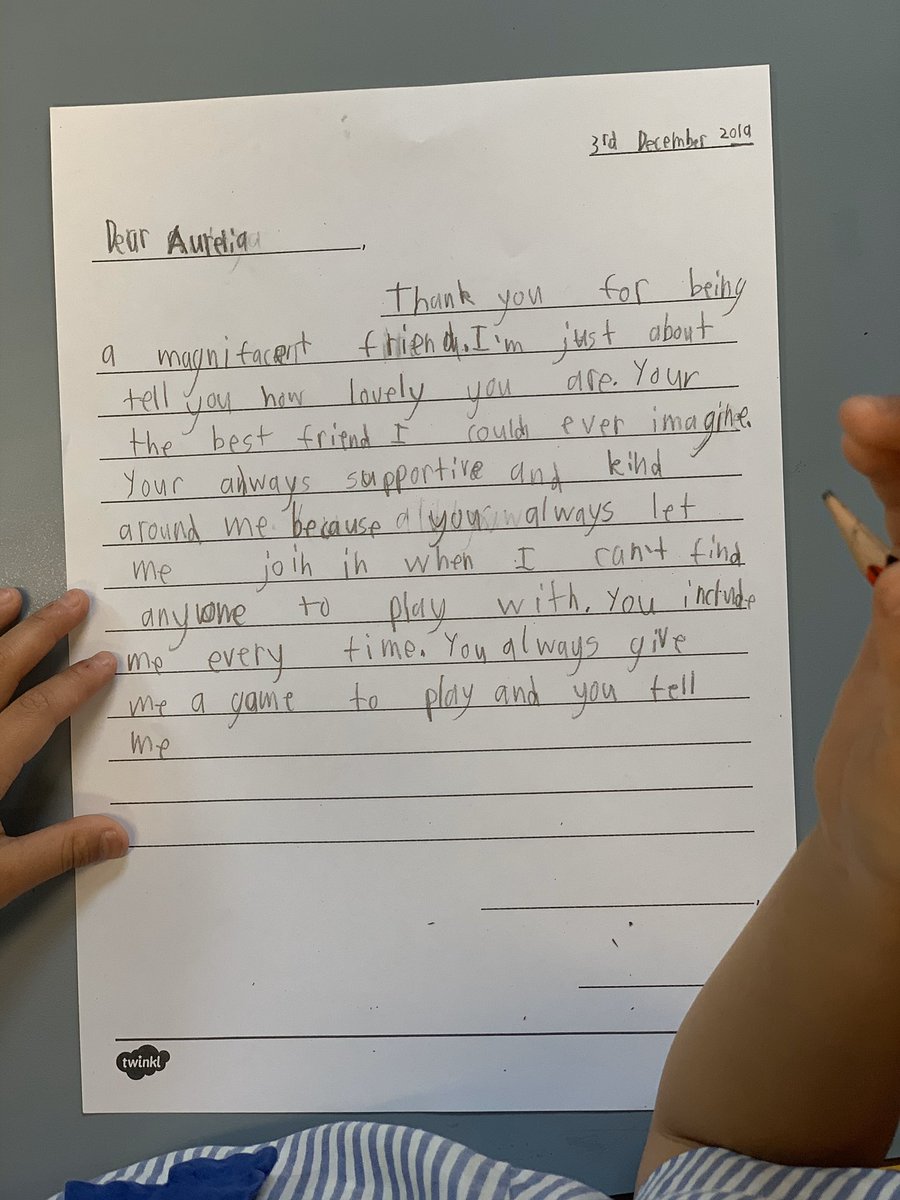 3rd December 2019
Dear Aurelia,
Thank you for being
a magnifacent friend. I'm just about
tell you how lovely you are. Your
the best friend I could ever imagine.
Your always supportive and kind
around me because you always let
me join in when I can't find
anyone to play with. You include
me every time. You always give
me a game to play and you tell
me
twinkl